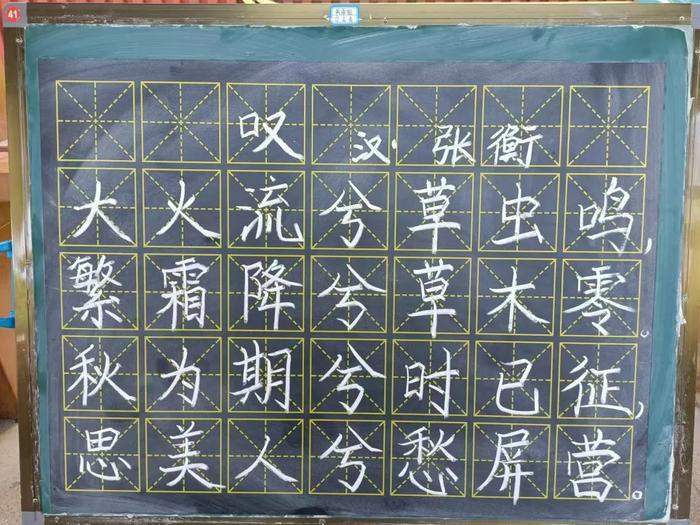 41
叹 汉·张衡
大火流兮草虫鸣,
繁霜降兮草木零。
秋为期兮时已征,
思美人兮愁屏营。